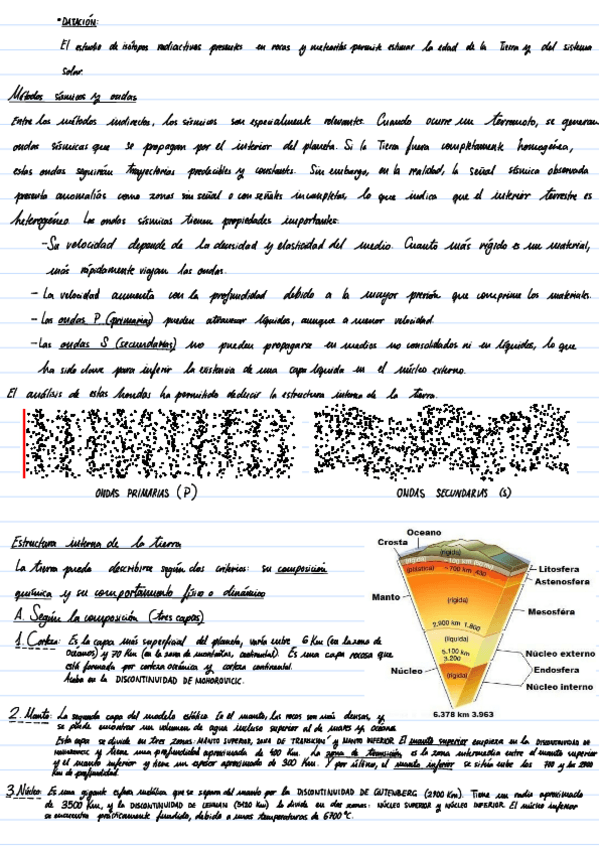 • DATACIÓN:
El estudio de isótopos radiactivos presentes en rocas y meteoritos permite estimar la edad de la Tierra y del sistema
solar.
Métodos sísmicos y ondas
Entre los métodos indirectos, los sísmicos son especialmente relevantes. Cuando ocurre un terremoto, se generan
ondas sísmicas que se propagan por el interior del planeta. Si la Tierra fuera completamente homogénea,
estas ondas seguirían trayectorias predecibles y constantes. Sin embargo, en la realidad, la señal sísmica observada
presenta anomalías como zonas sin señal o con señales incompletas, lo que indica que el interior terrestre es
heterogéneo. Las ondas sísmicas tienen propiedades importantes:
- Su velocidad depende de la densidad y elasticidad del medio. Cuanto más rígido es un material,
más rápidamente viajan las ondas.
- La velocidad aumenta con la profundidad debido a la mayor presión que comprime los materiales.
- Las ondas P (primarias) pueden atravesar líquidos, aunque a menor velocidad.
- Las ondas S (secundarias) no pueden propagarse en medios no consolidados ni en líquidos, lo que
ha sido clave para inferir la existencia de una capa líquida en el núcleo externo.
El análisis de estas hondas ha permitido deducir la estructura interna de la tierra.
ONDAS PRIMARIAS (P)
ONDAS SECUNDARIAS (S)
Estructura interna de la tierra
La tierra puede describirse según dos criterios: su composición
química y su comportamiento físico o dinámico
A. Según la composición (tres capas)
1. Corteza: Es la capa más superficial del planeta, varía entre 6 Km (en la zona de
océanos) y 70 Km (en la zona de montañas, continental). Es una capa rocosa que
está formada por corteza oceánica y corteza continental.
Acaba en la DISCONTINUIDAD DE MOHOROVICIC.
Oceano
Corteza
(rígida)
(rígida)
~100 km
(plástica)
~700 km
Litosfera
Astenosfera
Manto
(rígida)
Mesosféra
2.900 km 1.800
(líquida)
5.100 km
3.200
Núcleo externo
Endosfera
Núcleo
(rígida)
Núcleo interno
6.378 km 3.963
2. Manto: La segunda capa del modelo estático. En el manto, las rocas son más densas, y
se puede encontrar un volumen de agua incluso superior al de mares y océanos.
Esta capa se divide en tres zonas: MANTO SUPERIOR, ZONA DE TRANSICIÓN y MANTO INFERIOR. El manto superior empieza en la DISCONTINUIDAD DE
MOHOROVICIC y tiene una profundidad aproximada de 400 Km. La zona de transición es la zona intermedia entre el manto superior
y el manto inferior y tiene un espesor aproximado de 300 Km. Y por último, el manto inferior se sitúa entre los 700 y los 2900
Km de profundidad.
3. Núcleo: Es una gigante esfera metálica que se separa del manto por la DISCONTINUIDAD DE GUTENBERG (2900 Km). Tiene un radio aproximado
de 3500 Km, y la DISCONTINUIDAD DE LEHMAN lo divide en dos zonas: NÚCLEO SUPERIOR y NÚCLEO INFERIOR. El núcleo inferior
se encuentra prácticamente fundido, debido a unas temperaturas de 6700°C.